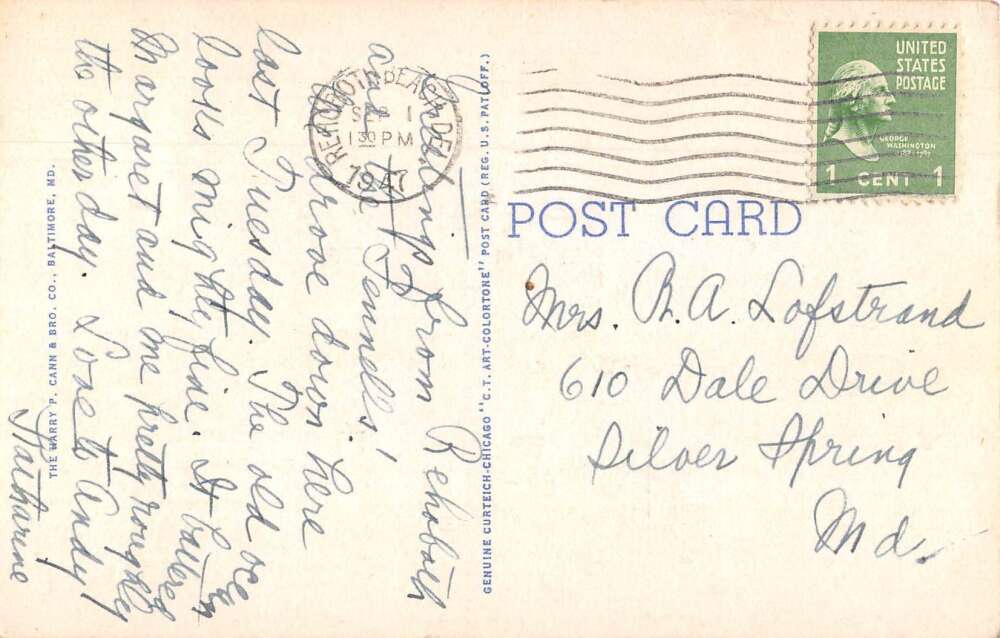 Greetings from Rehoboth
and the Fennells!
We drove down here
last Tuesday. The old ocean
looks mighty fine. It battered
Margaret and me pretty roughly
the other day. Love to Andy
Katharine
THE HARRY P. CANN & BRO. CO., BALTIMORE, MD.
GENUINE CURTEICH-CHICAGO "C.T. ART-COLORTONE" POST CARD (REG. U.S. PAT. OFF.)
REHOBOTH BEACH, DEL.
SEP 1
1 30 PM
1947
UNITED
STATES
POSTAGE
GEORGE
WASHINGTON
1789-1797
1 CENT 1
POST CARD
Mrs. R. A. Lofstrand
610 Dale Drive
Silver Spring
Md.